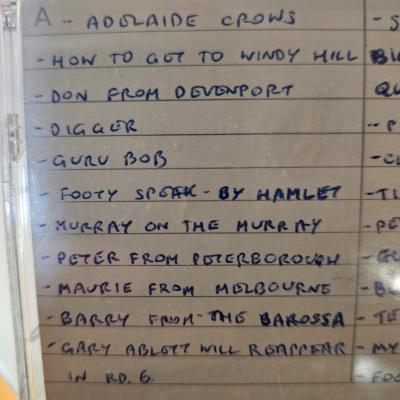 A - ADELAIDE CROWS
- HOW TO GET TO WINDY HILL
- DON FROM DEVENPORT
- DIGGER
- GURU BOB
- FOOTY SPEAK - BY HAMLET
- MURRAY ON THE MURRAY
- PETER FROM PETERBOROUGH
- MAURIE FROM MELBOURNE
- BARRY FROM THE BAROSSA
- GARY ABLETT WILL REAPPEAR
IN RD. 6